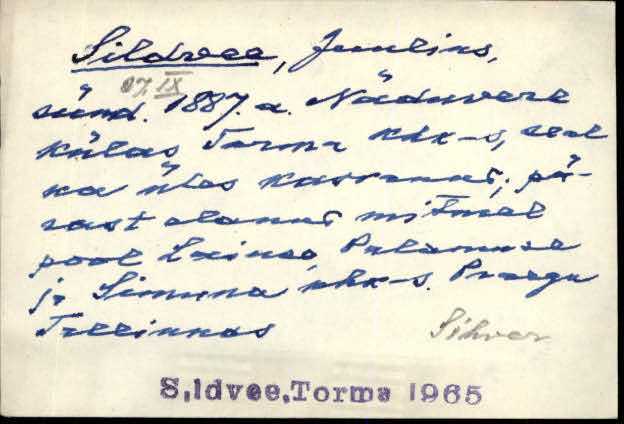 Sildvee, Juulius,
07. IX
sünd. 1887. a. Näduvere
külas Torma khk-s, seal
ka üles kasvanud; pä-
rast elanud mitmel
pool Laiuse, Palamuse
ja Simuna khk-s. Praegu
Tallinnas
Sihver
S.ldvee,Torma 1965